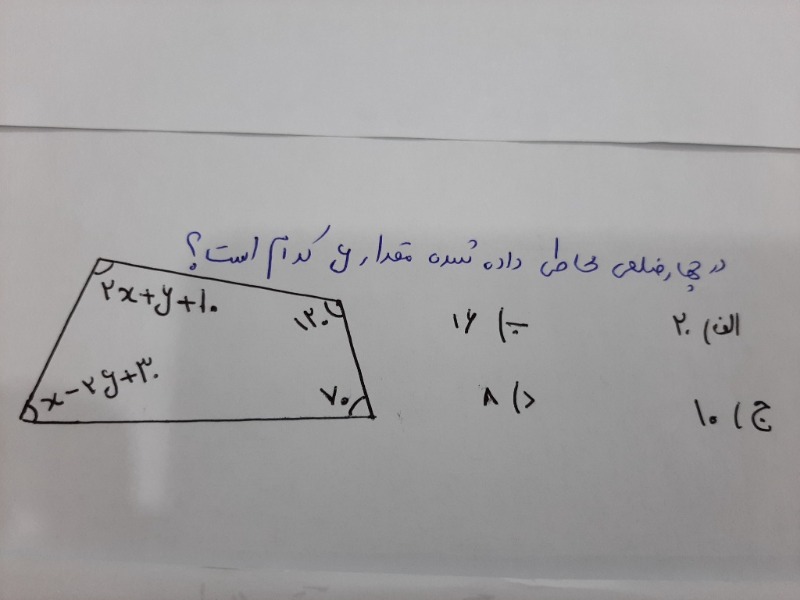 در چهارضلعی محاطی داده شده مقدار y کدام است؟
الف) ۲۰
ب) ۱۶
ج) ۱۰
د) ۸
۲x+y+۱۰
۱۲۰
x-۲y+۳۰
۷۰